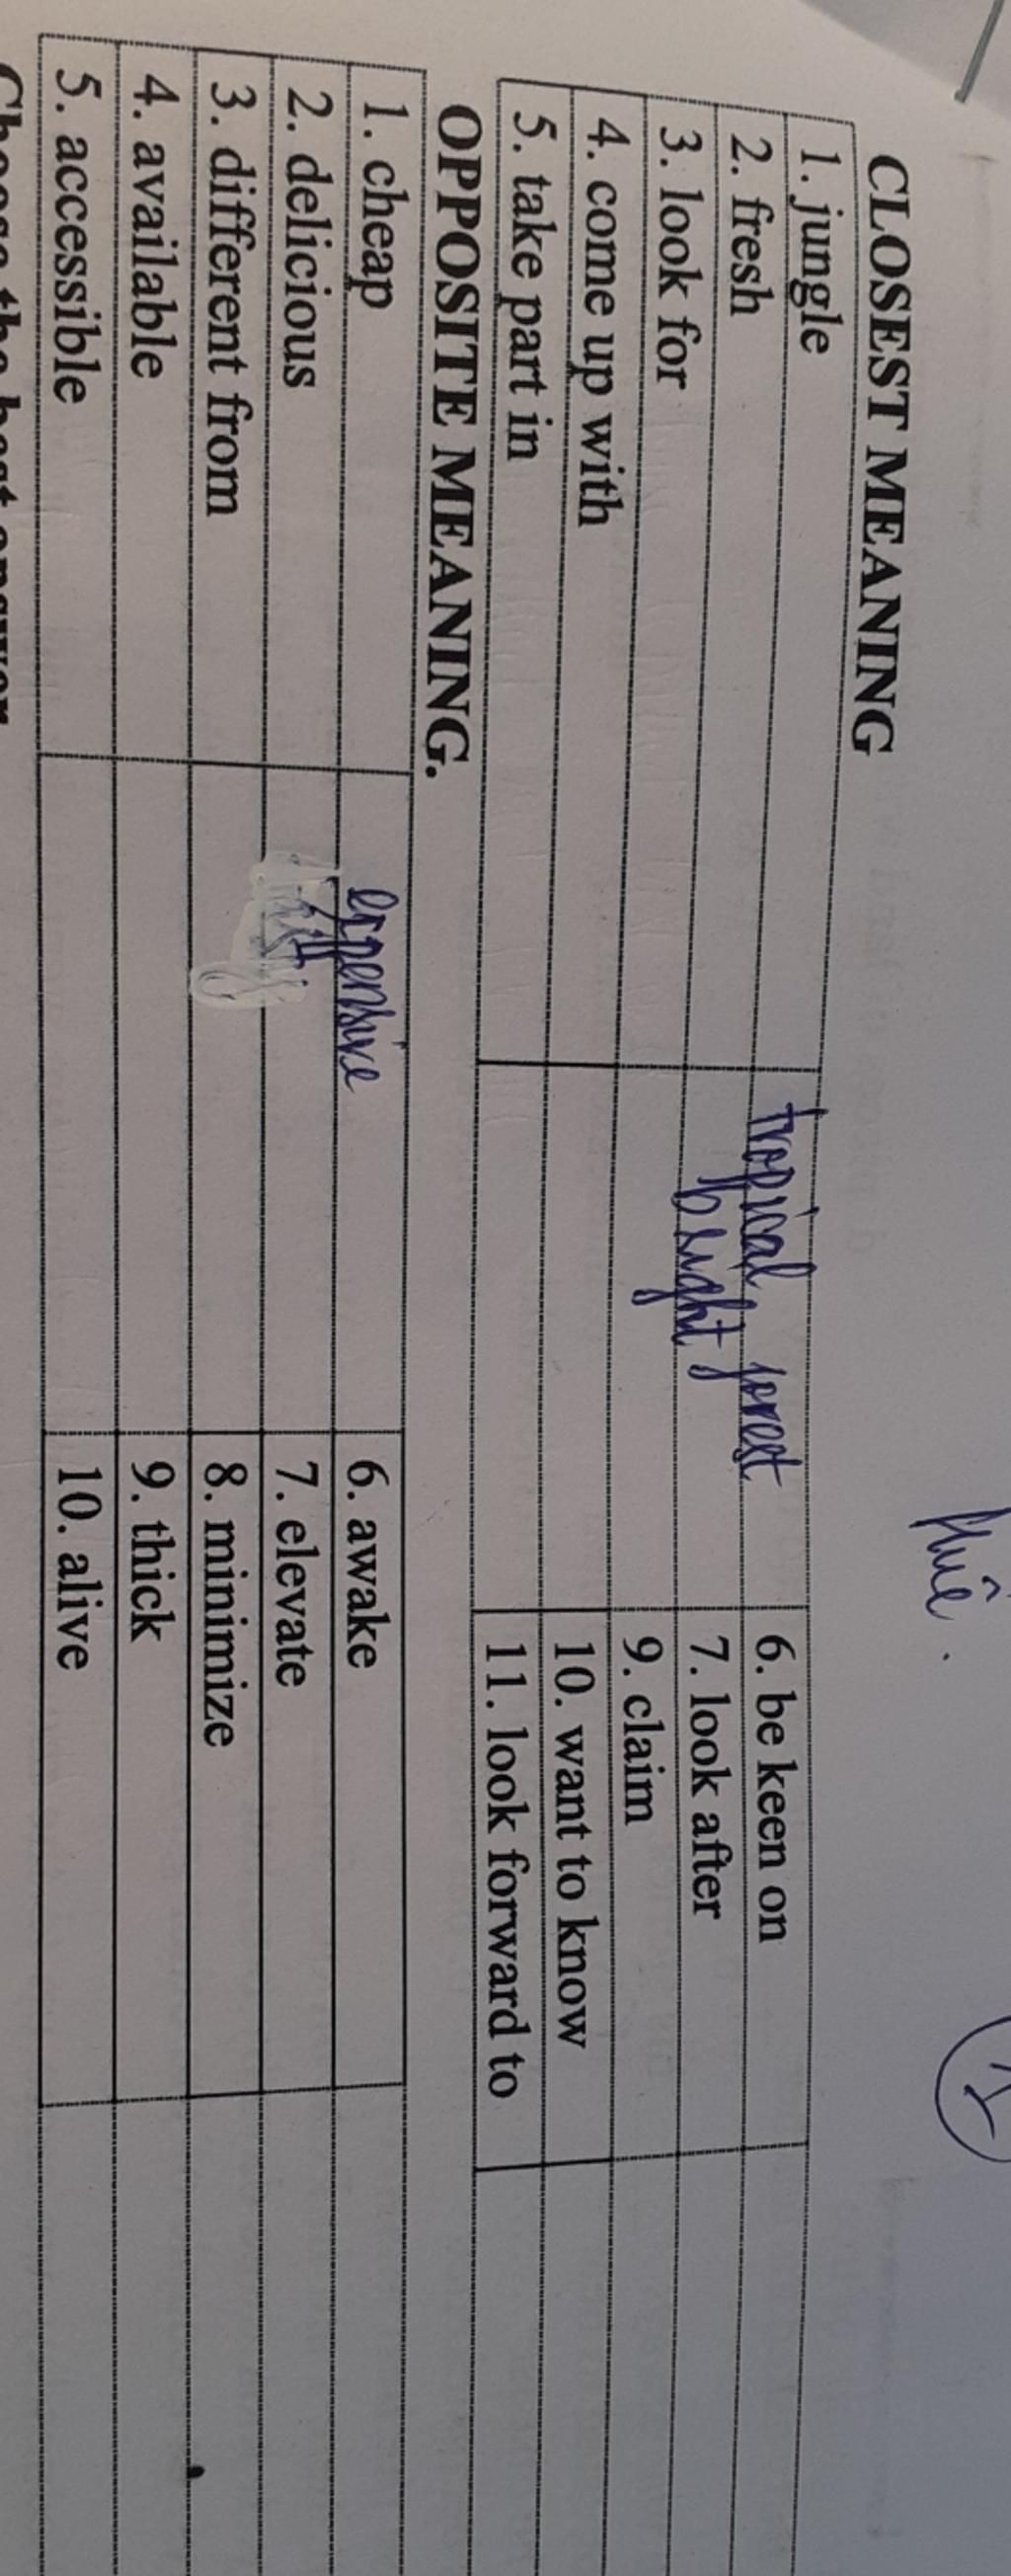 Huê.
CLOSEST MEANING
1. jungle tropical forest 6. be keen on
2. fresh bright 7. look after
3. look for 9. claim
4. come up with 10. want to know
5. take part in 11. look forward to
OPPOSITE MEANING.
1. cheap expensive 6. awake
2. delicious 7. elevate
3. different from 8. minimize
4. available 9. thick
5. accessible 10. alive
Choose the best answer